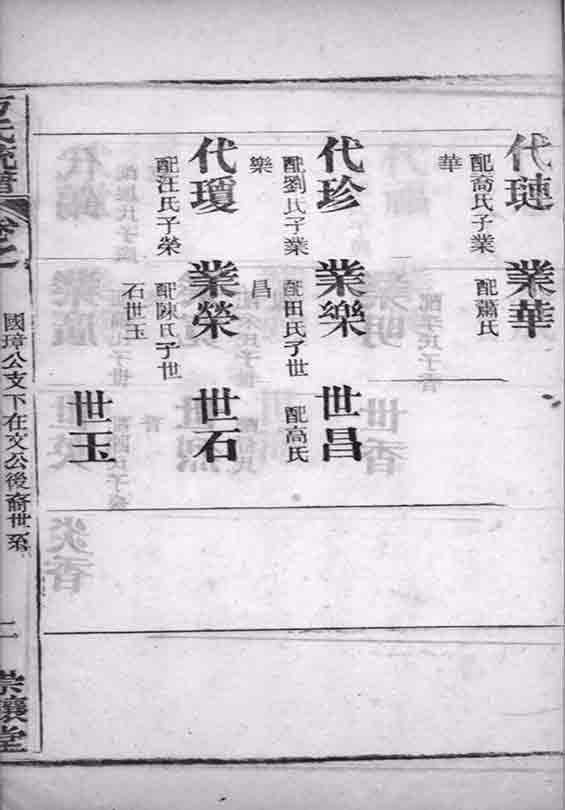 代璉
配喬氏子業
華
業華
配蕭氏
代珍
配劉氏子業
樂
業樂
配田氏子世
昌
世昌
配高氏
代瓊
配汪氏子榮
業榮
配陳氏子世
石世玉
世石
世玉
國璋公支下在文公後裔世系
二